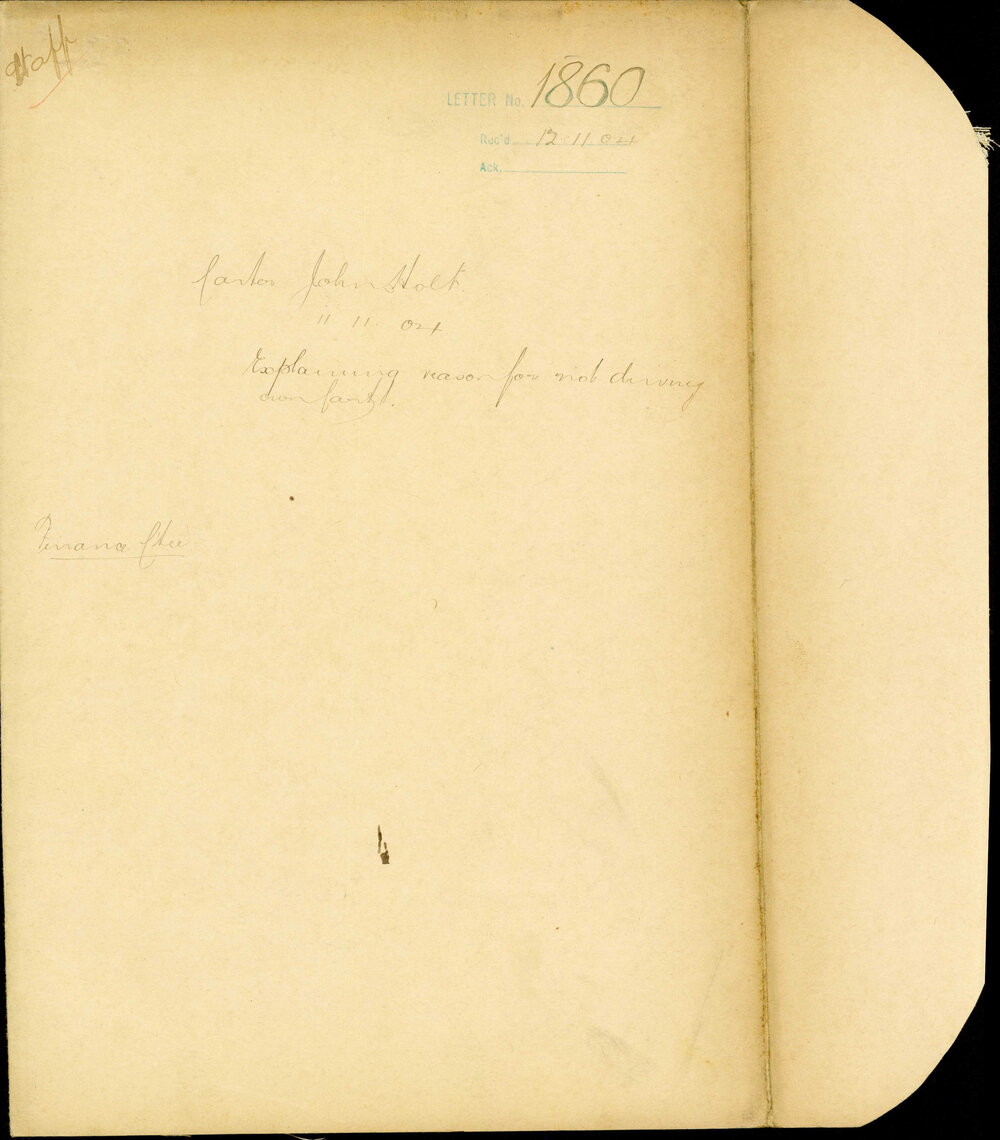 Staff
LETTER No. 1860
Rec'd 12.11.04
Ack.
Carter John Holt.
11 11. 04
Explaining reason for not driving
own Cart.
Finance Ctee